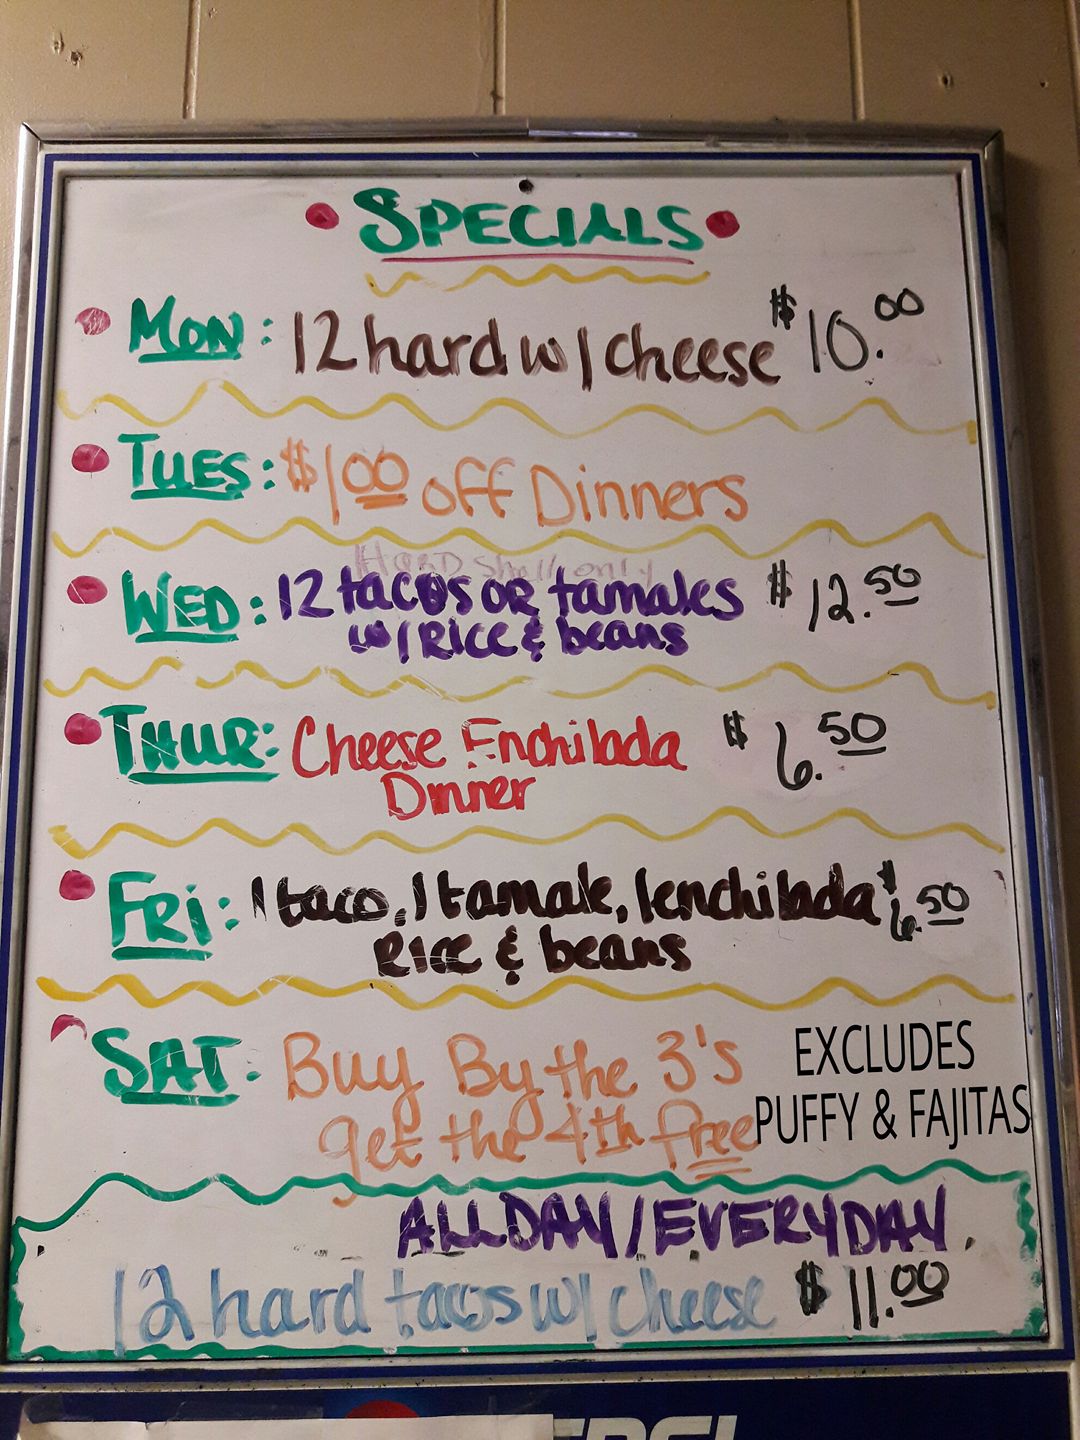 SPECIALS
MON: 12 hard w/ cheese $10.00
TUES: $100 off Dinners
HARD Shell only
WED: 12 tacos OR tamales $12.50
w/ RICE & beans
THUR: Cheese Enchilada $6.50
Dinner
FRI: 1 taco, 1 tamale, 1 enchilada $6.50
RICE & beans
SAT: Buy By the 3's
get the 4th free
EXCLUDES
PUFFY & FAJITAS
ALLDAY/EVERYDAY
12 hard tacos w/ cheese $11.00